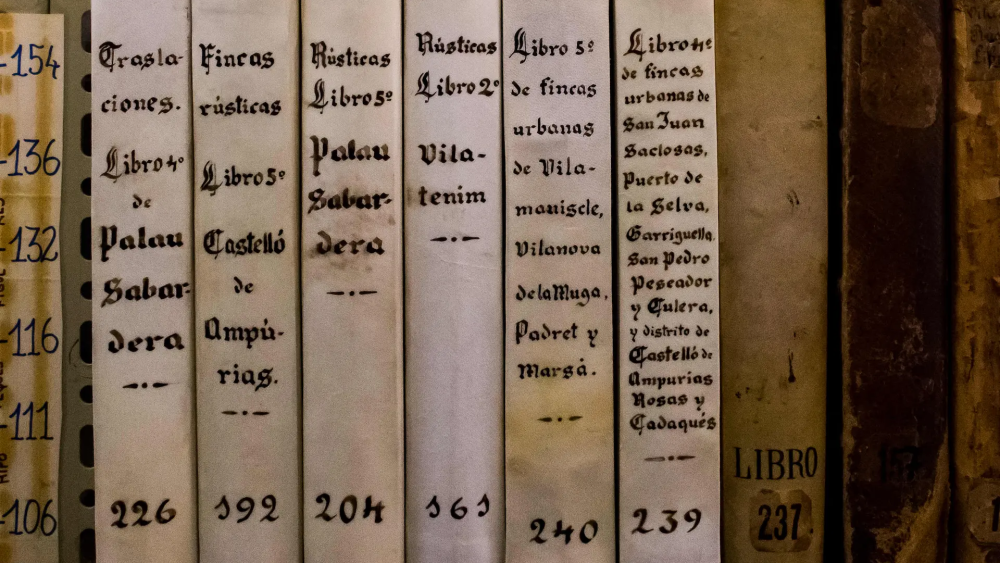 -154
-136
-132
-116
-111
-106
Trasla-
ciones.
Libro 4º
de
Palau
Sabar-
dera
226
Fincas
rústicas
Libro 5º
Castelló
de
Ampú-
rias.
192
Rústicas
Libro 5º
Palau
Sabar-
dera
204
Rústicas
Libro 2º
Vila-
tenim
161
Libro 5º
de fincas
urbanas
de Vila-
maniscle,
Vilanova
de la Muga,
Padret y
Marsá.
240
Libro 4º
de fincas
urbanas de
San Juan
Saclosas,
Puerto de
la Selva,
Garriguella,
San Pedro
Pescador
y Culera,
y distrito de
Castelló de
Ampurias
Rosas y
Cadaqués
239
LIBRO
237
157